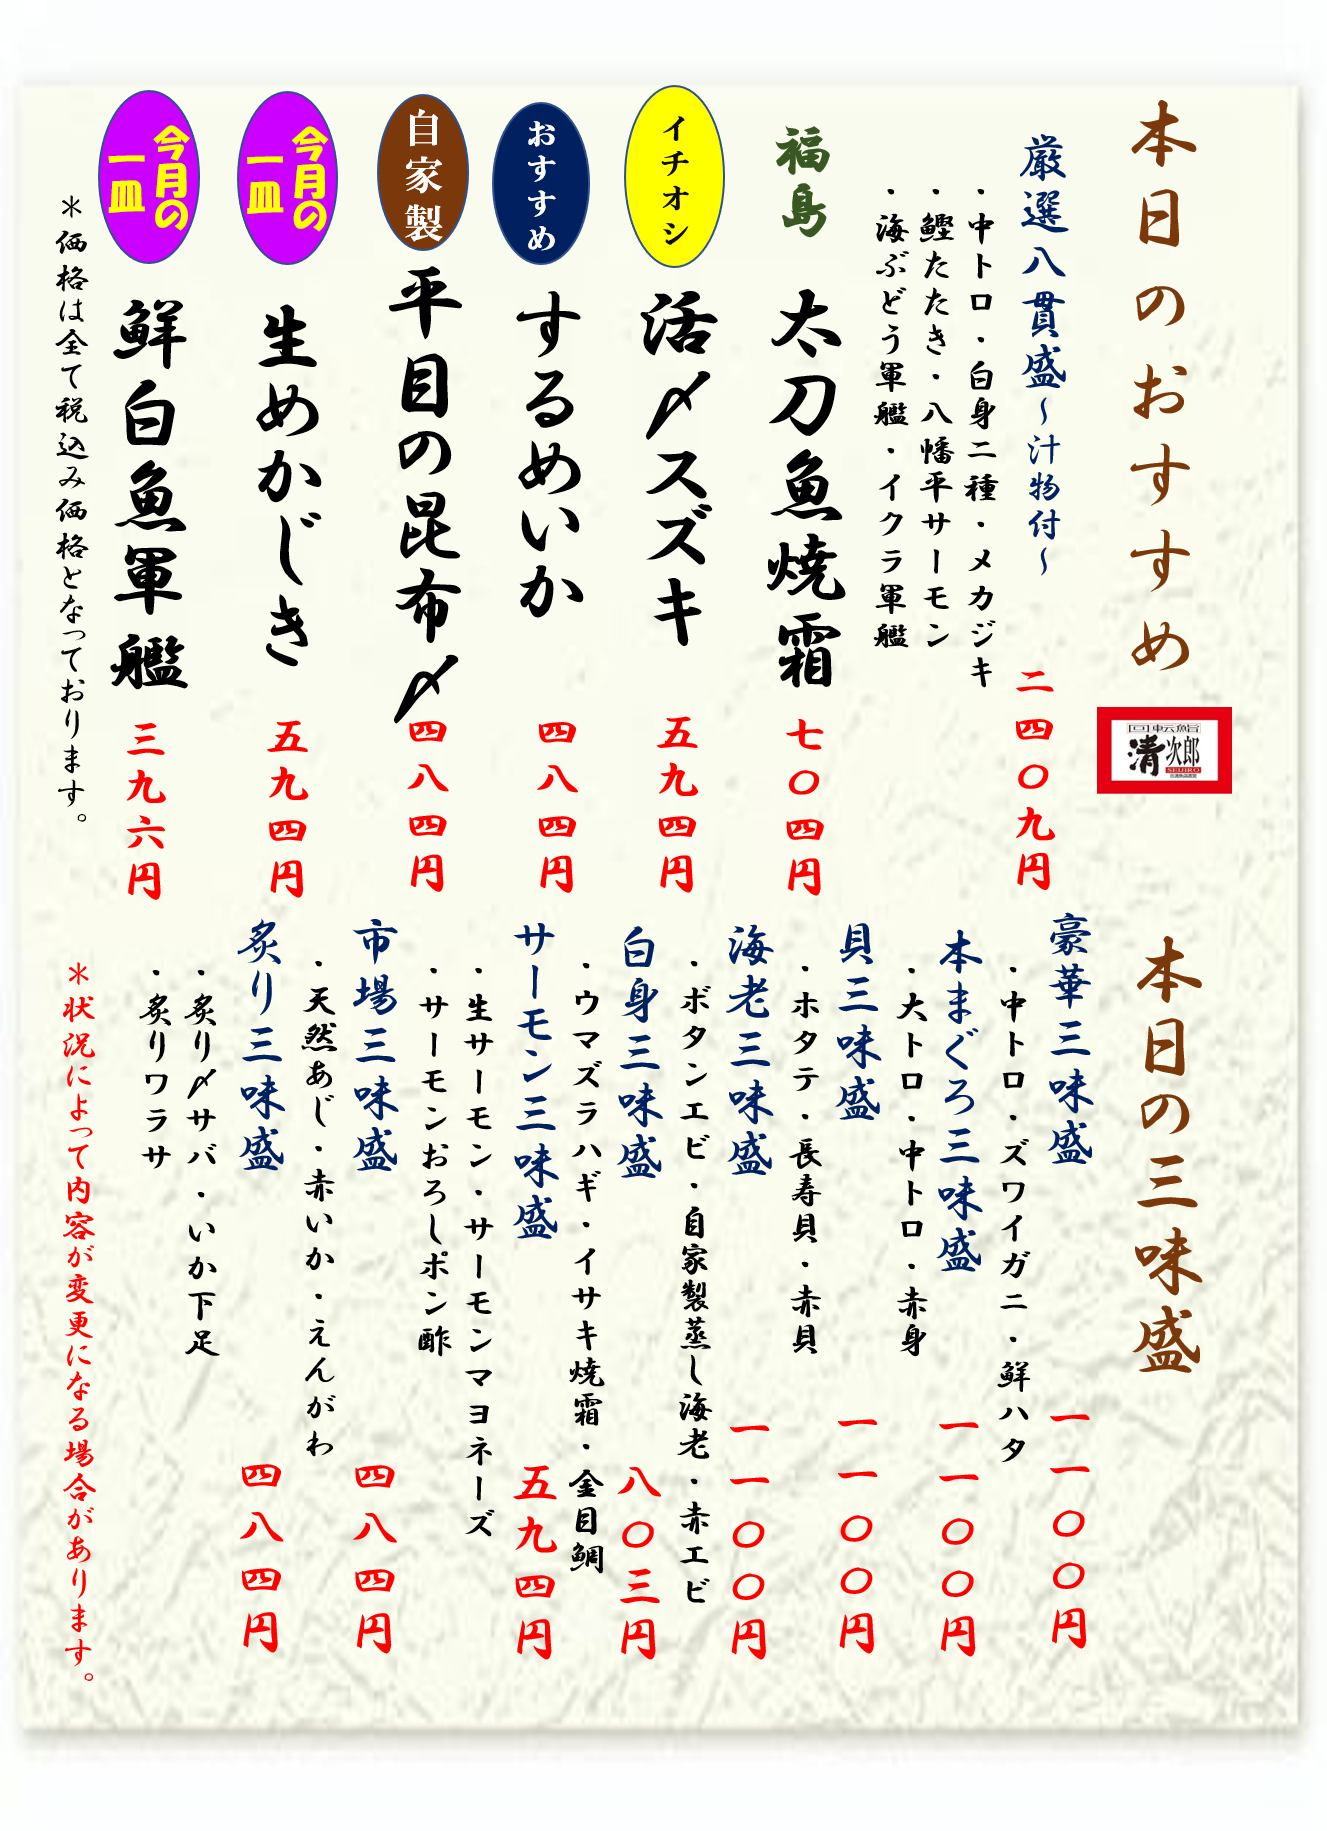 本日のおすすめ
厳選八貫盛～汁物付～
二四〇九円
・中トロ・白身二種・メカジキ
・鰹たたき・八幡平サーモン
・海ぶどう軍艦・イクラ軍艦
福島
太刀魚焼霜
七〇四円
イチオシ
活〆スズキ
五九四円
おすすめ
するめいか
四八四円
自家製
平目の昆布〆
四八四円
今月の
一皿
生めかじき
五九四円
今月の
一皿
鮮白魚軍艦
三九六円
＊価格は全て税込み価格となっております。
清次郎
SEIJIRO
本日の三味盛
豪華三味盛
一一〇〇円
・中トロ・ズワイガニ・鮮ハタ
本まぐろ三味盛
一一〇〇円
・大トロ・中トロ・赤身
貝三味盛
一一〇〇円
・ホタテ・長寿貝・赤貝
海老三味盛
一一〇〇円
・ボタンエビ・自家製蒸し海老・赤エビ
白身三味盛
八〇三円
・ウマズラハギ・イサキ焼霜・金目鯛
サーモン三味盛
五九四円
・生サーモン・サーモンマヨネーズ
・サーモンおろしポン酢
市場三味盛
四八四円
・天然あじ・赤いか・えんがわ
炙り三味盛
四八四円
・炙り〆サバ・いか下足
・炙りワラサ
＊状況によって内容が変更になる場合があります。